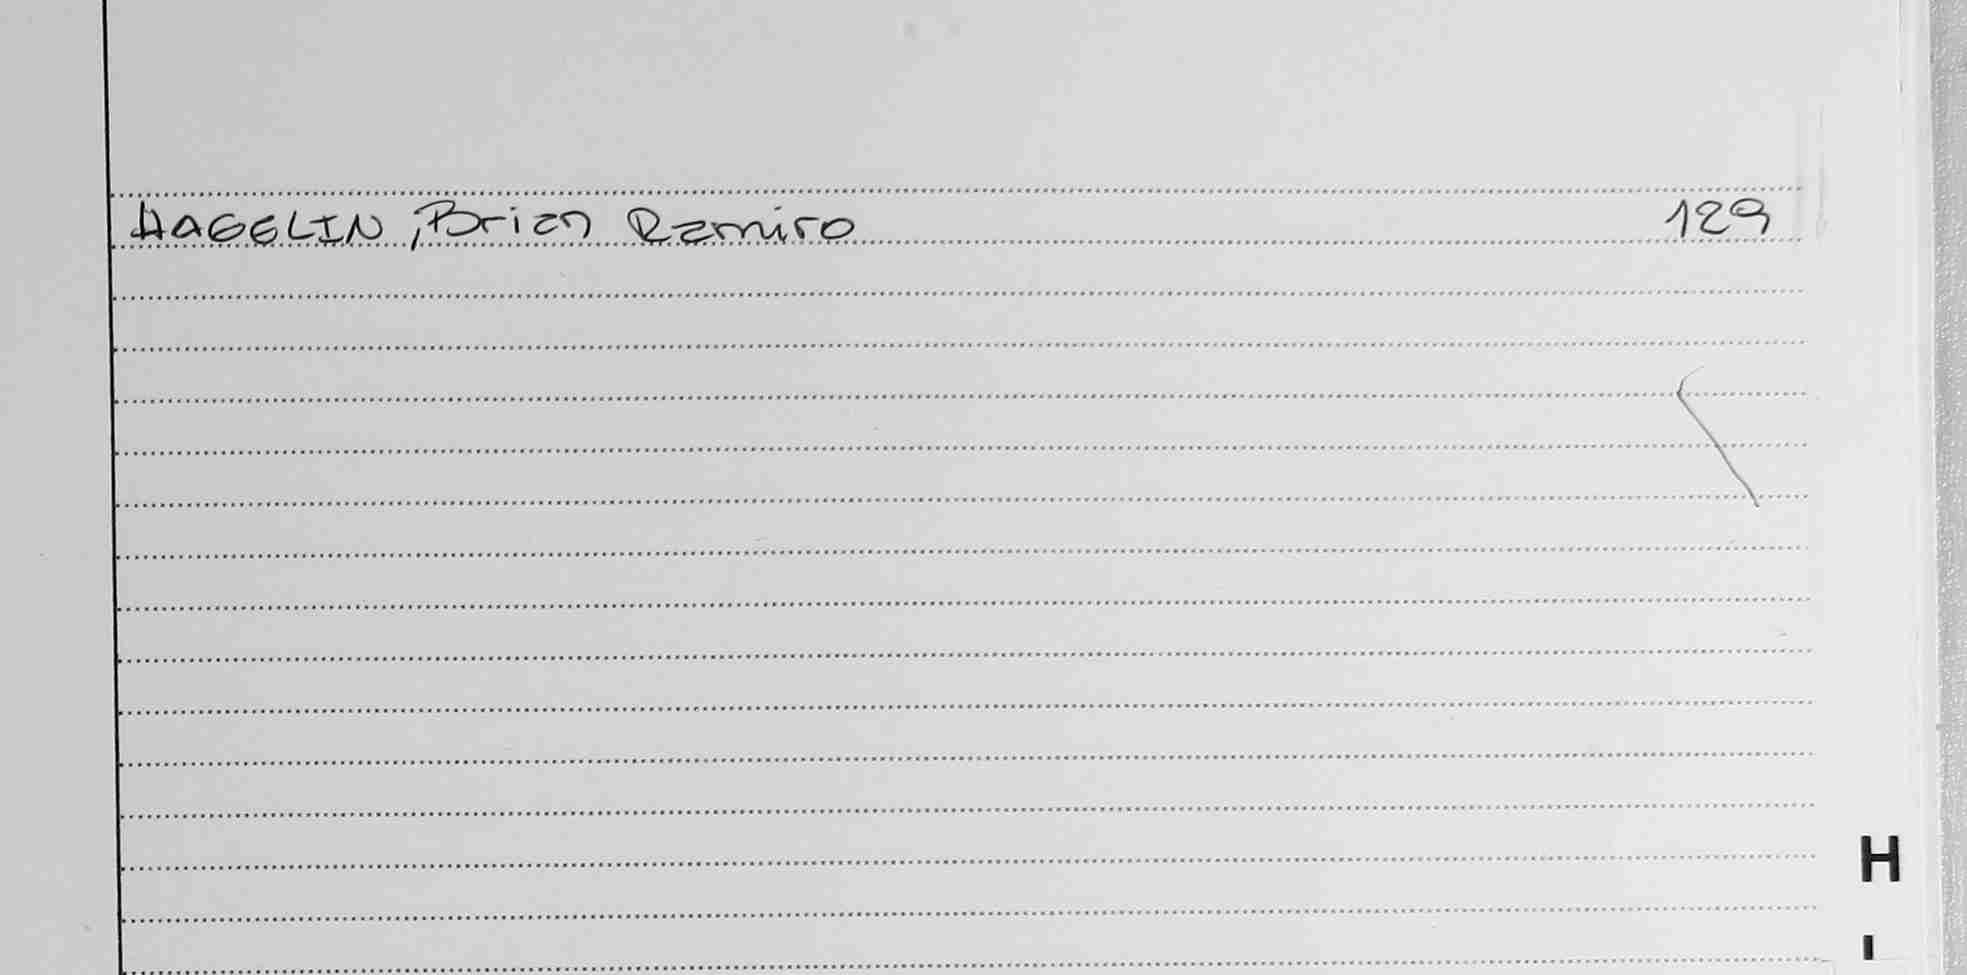 HAGELIN, Brian Ramiro 129
H
I